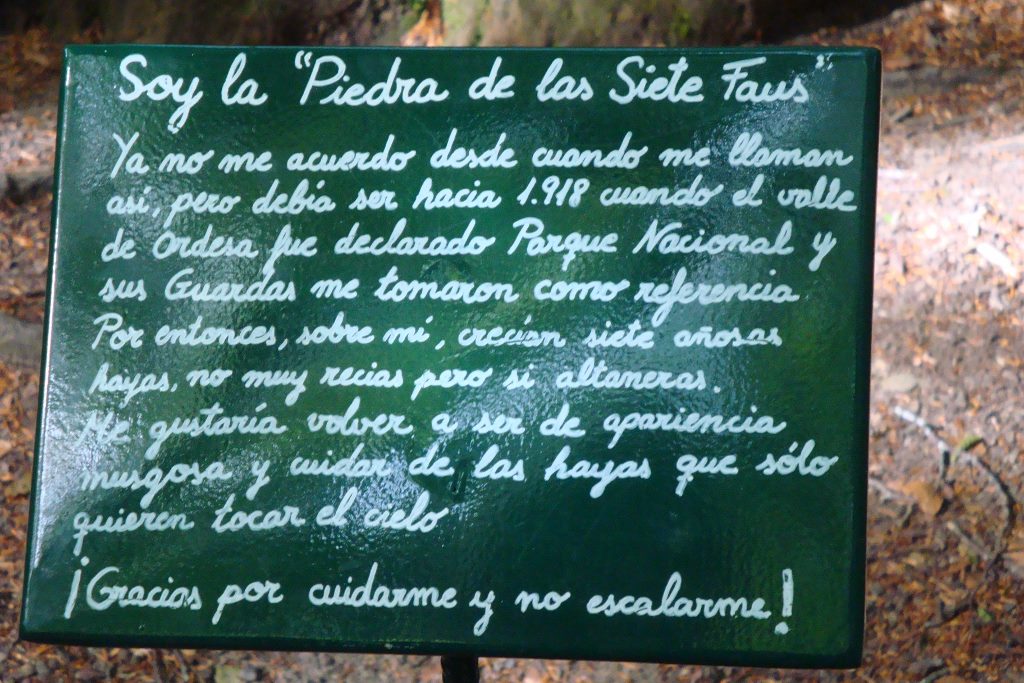 Soy la "Piedra de las Siete Faus"
Ya no me acuerdo desde cuando me llaman
así, pero debía ser hacia 1.918 cuando el valle
de Ordesa fue declarado Parque Nacional y
sus Guardas me tomaron como referencia
Por entonces, sobre mí, crecían siete añosas
hayas, no muy recias pero si altaneras.
Me gustaría volver a ser de apariencia
musgosa y cuidar de las hayas que sólo
quieren tocar el cielo
¡Gracias por cuidarme y no escalarme!